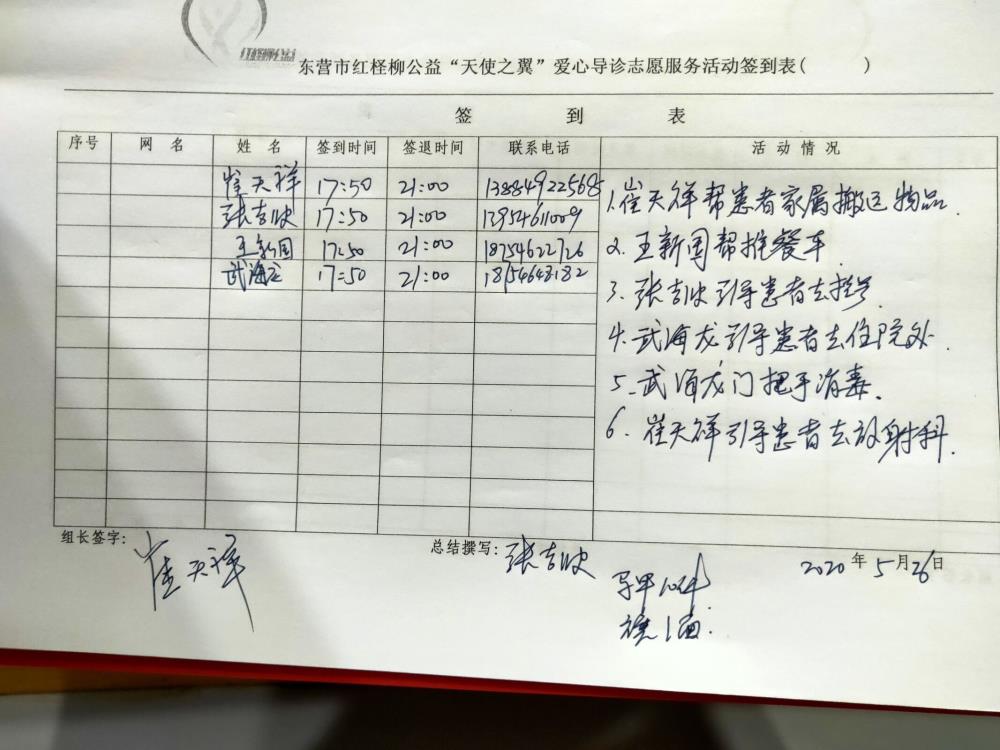 红柽柳公益
东营市红柽柳公益“天使之翼”爱心导诊志愿服务活动签到表( )
签 到 表
序号 网 名 姓 名 签到时间 签退时间 联系电话 活 动 情 况
崔天祥 17:50 21:00 13884922568
张吉收 17:50 21:00 13954611009
王新国 17:50 21:00 18754622726
武海龙 17:50 21:00 18154643182
1.崔天祥帮患者家属搬运物品.
2.王新国帮推餐车.
3.张吉收引导患者去挂号.
4.武海龙引导患者去住院处.
5.武海龙门把手消毒.
6.崔天祥引导患者去放射科.
组长签字: 崔天祥 总结撰写: 张吉收 2020年5月26日